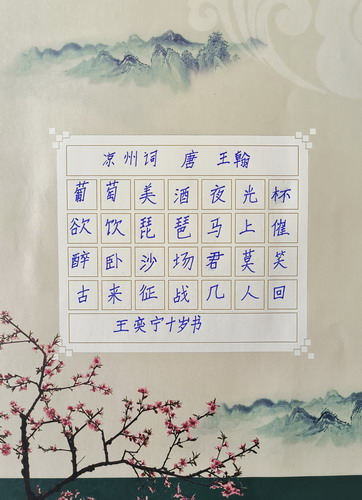 凉州词 唐 王翰
葡萄美酒夜光杯
欲饮琵琶马上催
醉卧沙场君莫笑
古来征战几人回
王奕宁十岁书